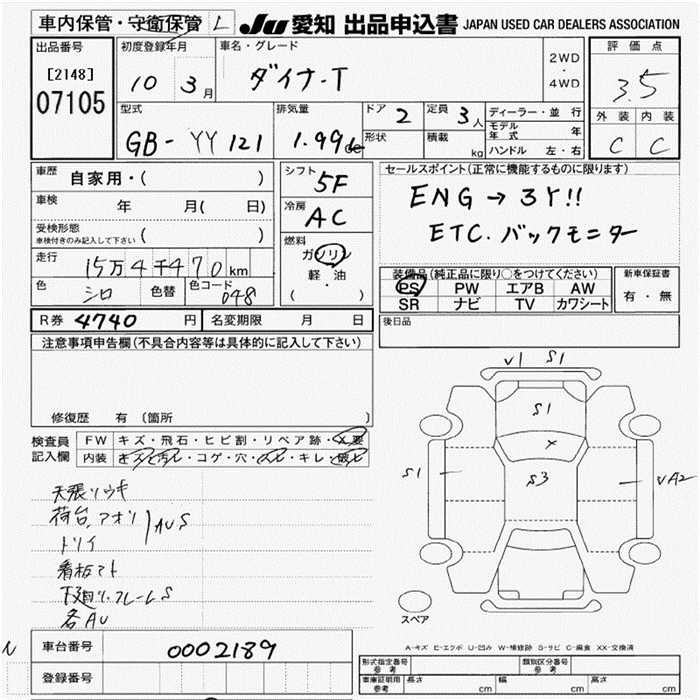 車内保管・守衛保管 L JU 愛知 出品申込書 JAPAN USED CAR DEALERS ASSOCIATION
出品番号
[2148]
07105
初度登録年月
10 3月
車名・グレード
ダイナ-T
2WD
・
4WD
評価点
3.5
外装 内装
C C
型式
GB-YY121
排気量
1.99L
ドア 2
形状
定員 3人
積載 kg
ディーラー・並行
モデル年式 年
ハンドル 左・右
車歴 自家用・( )
車検 年 月( 日)
受検形態
車検付きのみ記入して下さい ( )
走行 15万4千470km
色 シロ 色替 色コード 048
シフト 5F
冷房 AC
燃料
ガソリン
・
軽油
( )
セールスポイント(正常に機能するものに限ります)
ENG→3Y!!
ETC.バックモニター
装備品(純正品に限り○をつけてください)
PS PW エアB AW
SR ナビ TV カワシート
新車保証書
有・無
R券 4740 円 名変期限 月 日
後日品
注意事項申告欄(不具合内容等は具体的に記入して下さい)
修復歴 有 (箇所 )
検査員
記入欄
FW キズ・飛石・ヒビ割・リペア跡・X要
内装 キズ・汚レ・コゲ・穴・スレ・キレ・破レ
天張リウキ
荷台.アオリ AUS
トリイ
看板マト
下廻リ.フレームS
各AU
V1 S1
S1
X
S1
S3
VA2
スペア
A-キズ E-エクボ U-凹み W-補修跡 S-サビ C-腐食 XX-交換済
車台番号 0002189
登録番号
形式指定番号
参考
類別区分番号
参考
車庫証明用
参考
長さ cm 幅 cm 高さ cm